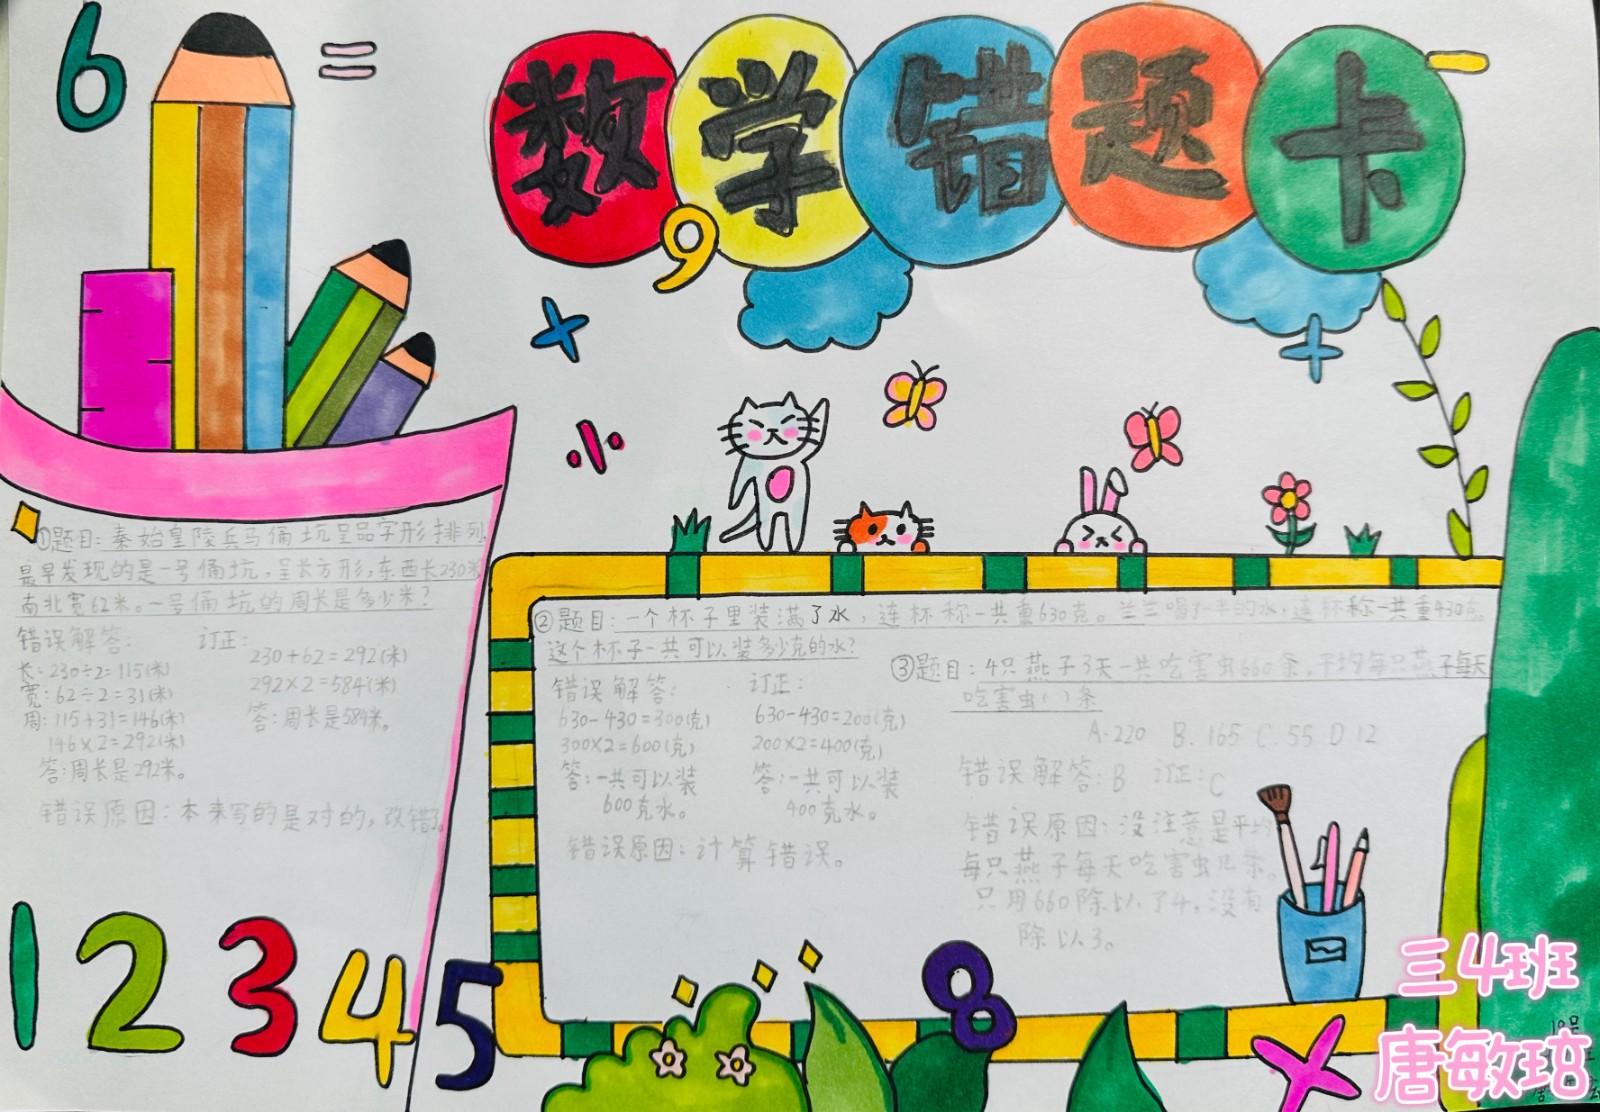 6 =
数学错题卡
9
①题目:秦始皇陵兵马俑坑呈品字形排列,
最早发现的是一号俑坑,呈长方形,东西长230米
南北宽62米。一号俑坑的周长是多少米?
错误解答:
长:230÷2=115(米)
宽:62÷2=31(米)
周:115+31=146(米)
146×2=292(米)
答:周长是292米。
订正:
230+62=292(米)
292×2=584(米)
答:周长是584米。
错误原因:本来写的是对的,改错了。
②题目:一个杯子里装满了水,连杯称一共重630克。兰兰喝了一半的水,连杯称一共重430克。
这个杯子一共可以装多少克的水?
错误解答:
630-430=300(克)
300×2=600(克)
答:一共可以装
600克水。
订正:
630-430=200(克)
200×2=400(克)
答:一共可以装
400克水。
错误原因:计算错误。
③题目:4只燕子3天一共吃害虫660条,平均每只燕子每天
吃害虫( )条
A.220 B.165 C.55 D 12
错误解答:B 订正:C
错误原因:没注意是平均
每只燕子每天吃害虫几条。
只用660除以了4,没有
除以3。
1 2 3 4 5
8
三4班
唐敏培